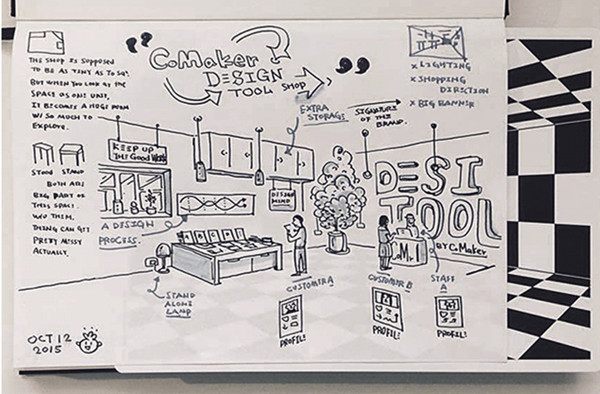 THE SHOP IS SUPPOSED
TO BE AS TINY AS TO SQ.
BUT WHEN YOU LOOK AT THE
SPACE AS ONE UNIT,
IT BECOMES A HUGE
W/ SO MUCH TO
EXPLORE.
STOOD STAND
BOTH ARE
BIG PART OF
THIS SPACE.
W/O THEM,
THING CAN GET
PRETTY MESSY
ACTUALLY.
OCT 12
2015
" CoMaker
DESIGN
TOOL SHOP "
x LIGHTING
x SHOPPING
DIRECTION
x BIG BANNER
EXTRA
STORAGE
SIGNATURE
OF THE
BRAND.
KEEP UP
THE Good Work
DESIGN
MIND
DESI
TOOL
BY CoMaker
A DESIGN
PROCESS.
STAND
ALONE
LAMP
CUSTOMER A
PROFIL!
CUSTOMER B
PROFIL!
STAFF
A
PROFIL!